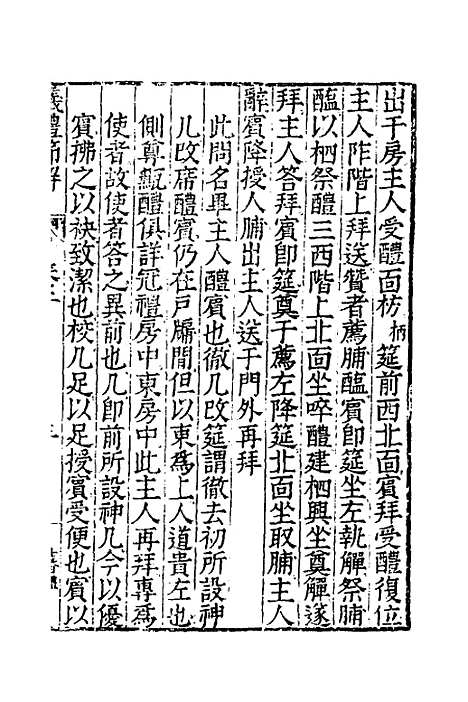 出于房主人受醴面枋柄筵前西北面賓拜受醴復位
主人阼階上拜送贊者薦脯醢賓即筵坐左執觶祭脯
醢以柶祭醴三西階上北面坐啐醴建柶興坐奠觶遂
拜主人答拜賓即筵奠于薦左降筵北面坐取脯主人
辭賓降授人脯出主人送于門外再拜
此問名畢主人醴賓也徹几改筵謂徹去初所設神
几改席醴賓仍在戶牖間但以東為上人道貴左也
側尊甒醴俱詳冠禮房中東房中此主人再拜專為
使者故使者答之異前也几即前所設神几今以優
賓拂之以袂致潔也校几足以足授賓受便也賓以
儀禮節解